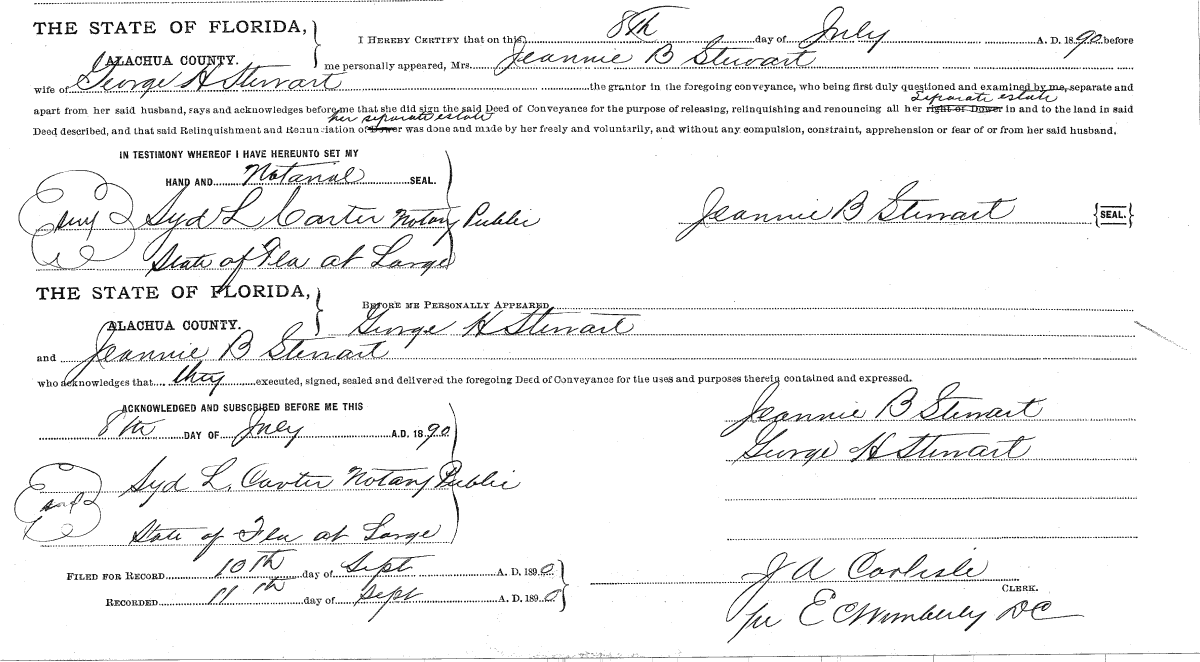 THE STATE OF FLORIDA,
ALACHUA COUNTY.
I HEREBY CERTIFY that on this 8th day of July A. D. 1890 before
me personally appeared, Mrs. Jeannie B Stewart
wife of George H Stewart the grantor in the foregoing conveyance, who being first duly questioned and examined by me, separate and
separate estate
apart from her said husband, says and acknowledges before me that she did sign the said Deed of Conveyance for the purpose of releasing, relinquishing and renouncing all her right of Dower in and to the land in said
her separate estate
Deed described, and that said Relinquishment and Renunciation of Dower was done and made by her freely and voluntarily, and without any compulsion, constraint, apprehension or fear of or from her said husband.
IN TESTIMONY WHEREOF I HAVE HEREUNTO SET MY
HAND AND Notarial SEAL.
Syd L Carter Notary Public
State of Fla at Large
Jeannie B Stewart {SEAL.}
THE STATE OF FLORIDA,
ALACHUA COUNTY.
BEFORE ME PERSONALLY APPEARED
George H Stewart
and Jeannie B Stewart
who acknowledges that they executed, signed, sealed and delivered the foregoing Deed of Conveyance for the uses and purposes therein contained and expressed.
ACKNOWLEDGED AND SUBSCRIBED BEFORE ME THIS
8th DAY OF July A.D. 1890
Syd L. Carter Notary Public
State of Fla at Large
Jeannie B Stewart
George H Stewart
FILED FOR RECORD 10th day of Sept A. D. 1890
RECORDED 11th day of Sept A. D. 1890
J A Carlisle
CLERK.
per E C Wimberly DC